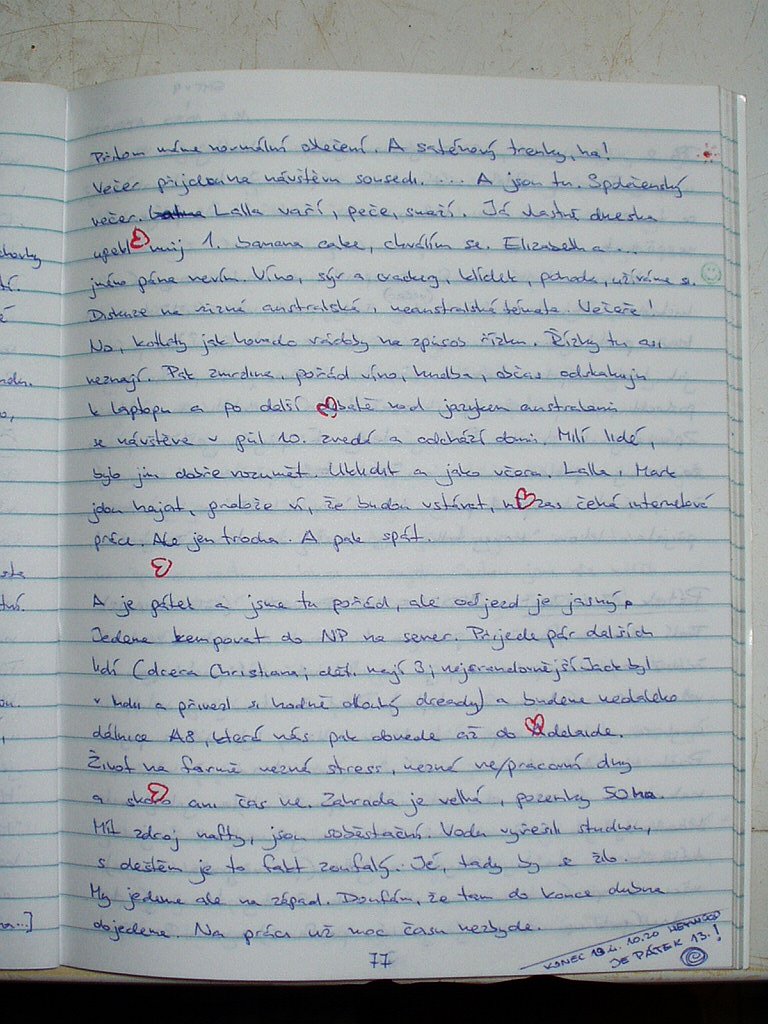 Přitom máme normální oblečení. A saténový trenky, ha!
Večer přijdou na návštěvu sousedi. ... A jsou tu. Společenský
večer. Lalla vaří, peče, smaží. Já vlastně dneska
upekl můj 1. banana cake, chválím se. Elizabeth a ...
jméno pána nevím. Víno, sýr a crackery, klídek, pohoda, užíváme si.
Diskuze na různá australská, neaustralská témata. Večeře!
No, kotlety jak hovado rádoby na způsob řízku. Řízky tu asi
neznají. Pak zmrzlina, pořád víno, hudba, občas odskakuju
k laptopu a po další debatě nad jazykem australanů
se návštěva v půl 10. zvedá a odchází domů. Milí lidé,
bylo jim dobře rozumět. Uklidit a jako včera. Lalla i Mark
jdou hajat, protože ví, že budou vstávat, nás zas čeká internetová
práce. Ale jen trocha. A pak spát.
A je pátek a jsme tu pořád, ale odjezd je jasný.
Jedeme kempovat do NP na sever. Přijede pár dalších
lidí (dcera Christiana; dětí mají 3; nejsrandovnější Jack byl
v Indii a přivezl si hodně dlouhý dready) a budeme nedaleko
dálnice A8, která nás pak dovede až do Adelaide.
Život na farmě nezná stress, nezná ne/pracovní dny
a skoro ani čas ne. Zahrada je velká, pozemky 50 ha.
Mít zdroj nafty, jsou soběstační. Vodu vyřešili studnou,
s deštěm je to fakt zoufalý. Jé, tady by se žilo.
My jedeme ale na západ. Doufám, že tam do konce dubna
dojedeme. Na práci už moc času nezbyde.
77
KONEC 13.4. 10.20 HEYWOOD
JE PÁTEK 13.!